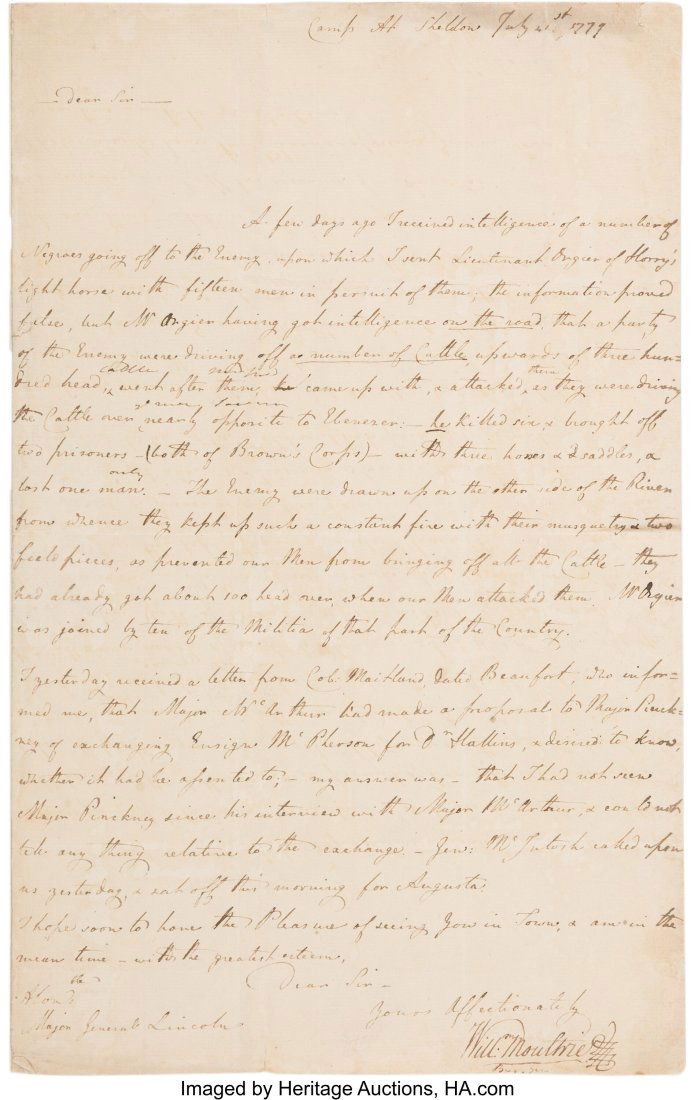 Camp At Sheldon July 21st, 1779
Dear Sir
A few days ago I received intelligence of a number of
Negroes going off to the Enemy, upon which I sent Lieutenant Ongier of Horry's
light horse with fifteen men in persuit of them; the information proved
false, but Mr Ongier having got intelligence on the road, that a party
of the Enemy were driving off a number of Cattle upwards of three hun=
dred head, & went after them, he came up with, & attacked them, as they were driving
the Cattle over nearly opposite to Ebenezer: — he killed six & brought off
two prisoners — (both of Brown's Corps) — with three horses & 3 saddles, &
lost one man only. — The Enemy were drawn up on the other side of the River
from whence they kept up such a constent fire with their musquetry & two
field pieces, as prevented our Men from bringing off all the Cattle — they
had already got about 100 head over, when our Men attacked them. Mr Ongier
was joined by ten of the Militia of that part of the Country.
I yesterday received a letter from Col: Maitland, dated Beaufort; who infor=
med me, that Major McArthur had made a proposal to Major Pinck=
ney of exchanging Ensign McPherson for Dr Hallins, & desired to know,
whether it had be assented to; — my answer was — that I had not seen
Major Pinckney since his interview with Major McArthur, & could not
tell any thing relative to the exchange — Gen: McIntosh called upon
us yesterday, & sat off this morning for Augusta.
I hope soon to have the Pleasure of seeing You in Town, & am in the
mean time — with the greatest esteem,
Dear Sir —
Yours Affectionately
Honble
Major General Lincoln
Willm Moultrie
Imaged by Heritage Auctions, HA.com